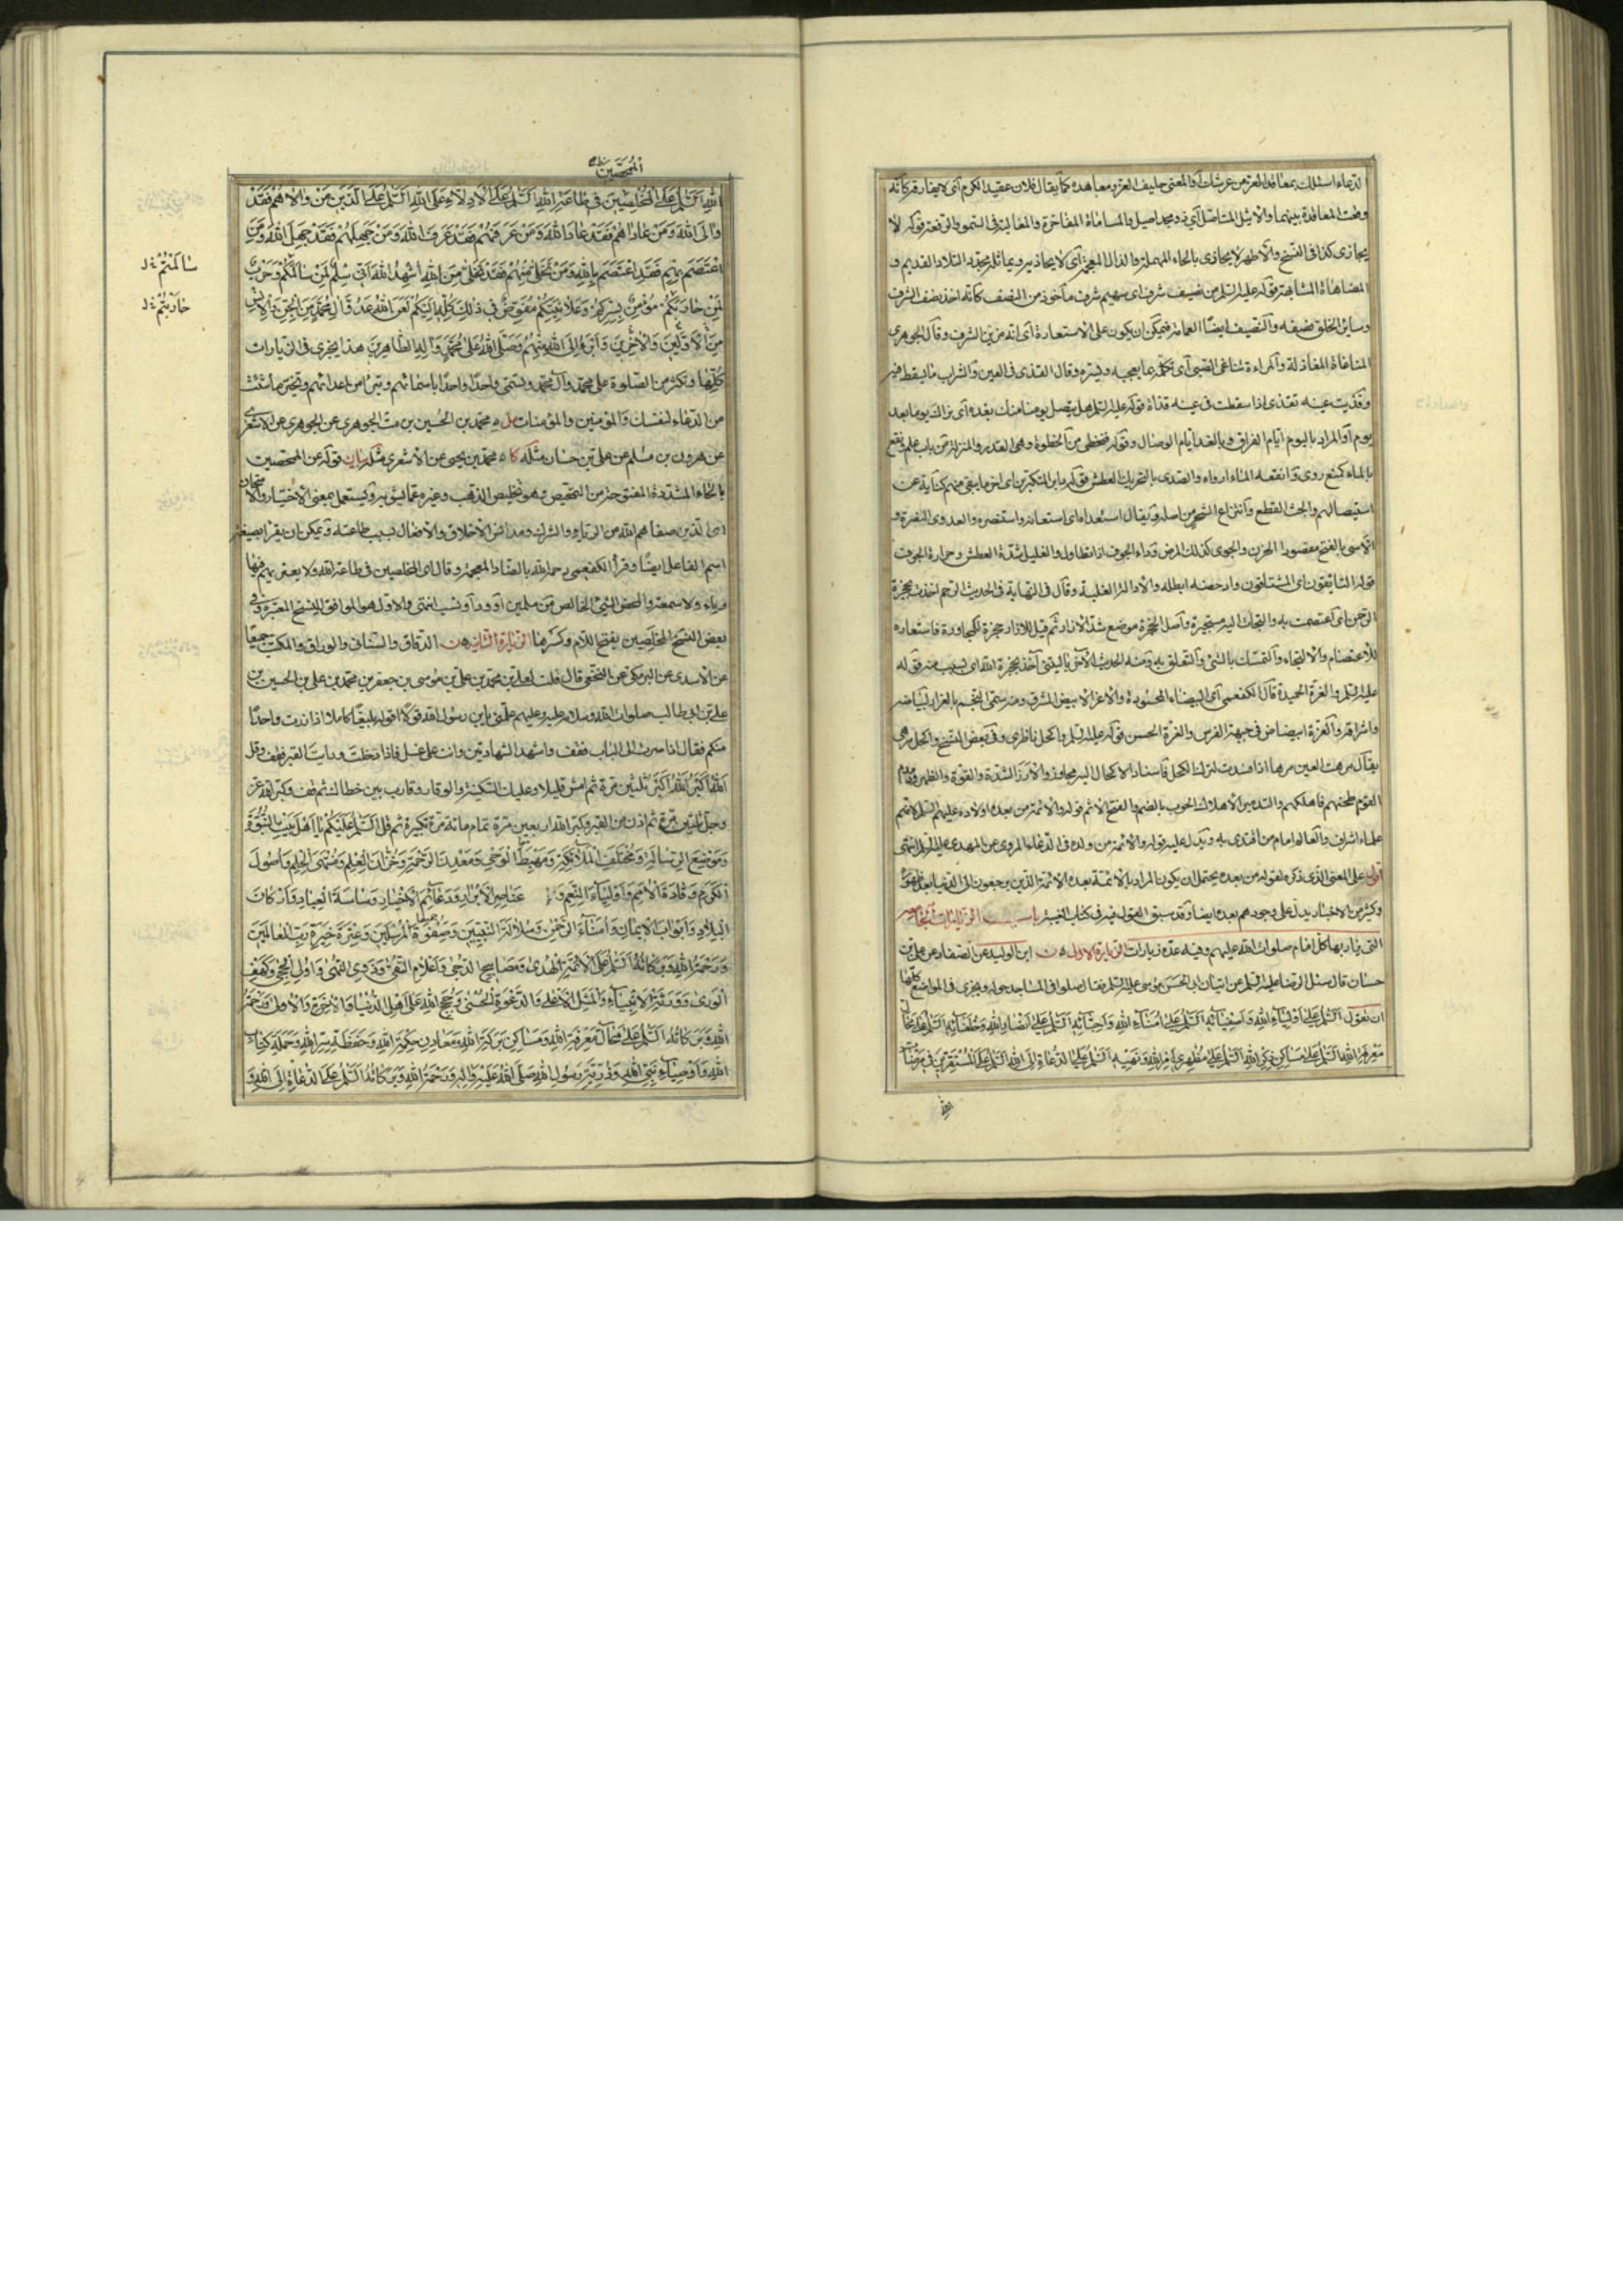 لدعاء اسئلك بمعاقد العز من عرشك أو المعنى حليف العز ومعاهده كما يقال فلان عقيد الكرم أي لا يفارقه كأنه
وقعت المعاقدة بينهما والأثيل المتأصل أي ذو مجد أصيل والمساماة المفاخرة والمغالبة في السمو والرفعة قوله لا
يجازى كذا في النسخ والأظهر لا يحاذى بالحاء المهملة والذال المعجمة أي لا يحاذيه ويماثله مجد به التلاد القديم و
المضاهاة المشابهة قوله عليه السلم من نصيف شرف أي سهيم شرف مأخوذ من النصف كأنه أخذ نصف الشرف
وسائر الخلق نصفه والنصيف ايضا العمامة فيمكن ان يكون على الاستعارة أي انه مزين الشرف وقال الجوهري
المناغاة المغازلة والمراءة تناغى الصبي أي تكلمه بما يعجبه ويسره وقال القذى في العين والشراب ما يسقط فيه
وقذيت عينه تقذى اذا سقطت في عينه قذاة قوله عليه السلم هل يتصل يومنا منك بغده أي بزاك يوما بعد
يوم أو المراد باليوم ايام الفراق وبالغد ايام الوصال وقوله فنحظى من الحظوة وهي القدر والمنزلة من باب علم ونقع
بالماء كمنع روى وانقعه الماء ارواه والصدى بالتحريك العطش قوله بابن المتكبرين أي
استيصالهم والجث القطع وانتزاع الشجر من اصله ويقال استعداه أي استعانه واستنصره والعدوى النصرة و
الاسى بالفتح مقصورا الحزن والجوى كذلك المرض وداء الجوف اذا تطاول والغليل شدة العطش وحرارة الجوف
قوله الشايقون أي المشتاقون وادحضه ابطله والادالة الغلبة وقال في النهاية في الحديث الرحم اخذت بحجزة
الرحمن أي اعتصمت به والتجات اليه مستجيرة واصل الحجزة موضع شد الازار ثم قيل للازار حجزة للمجاورة فاستعاره
للاعتصام والالتجاء والتمسك بالشئ والتعلق به ومنه الحديث الآخر ياليتني آخذ بحجزة الله أي بسبب منه قوله
عليه السلم والغرة الحميدة قال الكفعمي أي البيضاء المحمودة والاغر الابيض المشرق ومنه سمى النجم بالغرار لبياضه
واشراقه والغرة ابيضاض في جبهة الفرس والغرة الحسن قوله عليه السلم واكحل ناظري وفي بعض النسخ واكحل مرهى
يقال مرهت العين مرها اذا فسدت لترك الكحل فاسناد الاكحال اليه مجاز والازر الشدة والقوة والظهر
القوم طحنهم فاهلكهم والتدمير الاهلاك الحوب بالضم والفتح الاثم قوله والائمة من بعده اولاده عليهم السلم لانهم
علماء اشراف والعالم امام من اقتدى به ويدل عليه قوله والائمة من ولده في الدعاء المروى عن المهدي عليه السلم انتهى
أقول على المعنى الذي ذكره لقوله من بعده يحتمل ان يكون المراد بالائمة بعده الائمة الذين يرجعون الى الدنيا بعد ظهوره
وكثير من الاخبار يدل على رجوعهم بعده ايضا وقد سبق القول فيه في كتاب الغيبة باب الزيارات الجامعة
التي يزار بها كل امام صلوات الله عليهم وفيه عدة زيارات الزيارة الاولى ن ابن الوليد عن الصفار عن علي بن
حسان قال سئل الرضا عليه السلم عن اتيان ابي الحسن موسى عليه السلم فقال صلوا في المساجد حوله ويجزى في المواضع كلها
ان تقول السلم على اولياء الله واصفيائه السلم على امناء الله واحبائه السلم على انصار الله وخلفائه السلم على محال
معرفة الله السلم على مساكن ذكر الله السلم على مظهري امر الله ونهيه السلم على الدعاة الى الله السلم على المستقرين في مرضات
الله
الممحصين
الله السلم على المخلصين في طاعة الله السلم على الادلاء على الله السلم على الذين من والاهم فقد
والى الله ومن عاداهم فقد عادا الله ومن عرفهم فقد عرف الله ومن جهلهم فقد جهل الله ومن
اعتصم بهم فقد اعتصم بالله ومن تخلى منهم فقد تخلى من الله اشهد الله اني سلم لمن سالمكم وحرب
سالمتم
لمن حاربكم مؤمن بسركم وعلانيتكم مفوض في ذلك كله اليكم لعن الله عدو آل محمد من الجن والانس
حاربتم
من الاولين والاخرين وابرء الى الله منهم وصلى الله على محمد وآله الطاهرين هذا يجزى في الزيارات
كلها وتكثر من الصلوة على محمد وآل محمد وتسمى واحدا واحدا باسمائهم وتبرأ من اعدائهم وتخير ما شئت
من الدعاء لنفسك والمؤمنين والمؤمنات مل محمد بن الحسين بن مت الجوهري عن الاشعري
عن هرون بن مسلم عن علي بن حسان مثله كا محمد بن يحيى عن الاشعري مثله بيان قوله عن الممحصين
بالحاء المشددة المفتوحة من التمحيص وهو تخليص الذهب وغيره عما يشوبه ويستعمل بمعنى الاختيار والامتحان
أي الذين صفاهم الله من الرياء والشرك ومدانس الاخلاق والافعال بسبب طاعته ويمكن ان يقرأ بصيغة
اسم الفاعل ايضا وقرأ الكفعمي رحمه الله بالضاد المعجمة وقال أي المخلصين في طاعة الله ولا يعتريهم فيها
رياء ولا سمعة والمحض الشئ الخالص من انتهى والاول هو الموافق للنسخ المعتبرة وفي
بعض النسخ المخلصين بفتح اللام وكسرها الزيارة الثانية ن الدقاق والسناني والوراق والمكتب جميعا
عن الاسدي عن البرمكي عن النخعي قال قلت لعلي بن محمد بن علي بن موسى بن جعفر بن محمد بن علي بن الحسين بن
علي بن ابي طالب صلوات الله وسلامه عليه وعليهم علمني يابن رسول الله قولا اقوله بليغا كاملا اذا زرت واحدا
منكم فقال اذا صرت الى الباب فقف واشهد الشهادتين وانت على غسل فاذا دخلت ورايت القبر فقف وقل
الله اكبر الله اكبر ثلثين مرة ثم امش قليلا وعليك السكينة والوقار وقارب بين خطاك ثم قف وكبر الله عز
وجل ثلثين مرة ثم ادن من القبر وكبر الله اربعين مرة تمام مائة تكبيرة ثم قل السلم عليكم يا اهل بيت النبوة
وموضع الرسالة ومختلف الملائكة ومهبط الوحي ومعدن الرحمة وخزان العلم ومنتهى الحلم واصول
الكرم وقادة الامم واولياء النعم و عناصر الابرار ودعائم الاخيار وساسة العباد واركان
البلاد وابواب الايمان وامناء الرحمن وسلالة النبيين وصفوة المرسلين وعترة خيرة رب العالمين
ورحمة الله وبركاته السلم على ائمة الهدى ومصابيح الدجى واعلام التقى وذوي النهى واولي الحجى وكهف
الورى وورثة الانبياء والمثل الاعلى والدعوة الحسنى وحجج الله على اهل الدنيا والاخرة والاولى ورحمة
الله وبركاته السلم على محال معرفة الله ومساكن بركة الله ومعادن حكمة الله وحفظة سر الله وحملة كتاب
الله واوصياء نبي الله وذرية رسول الله صلى الله عليه وآله ورحمة الله وبركاته السلم على الدعاة الى الله و